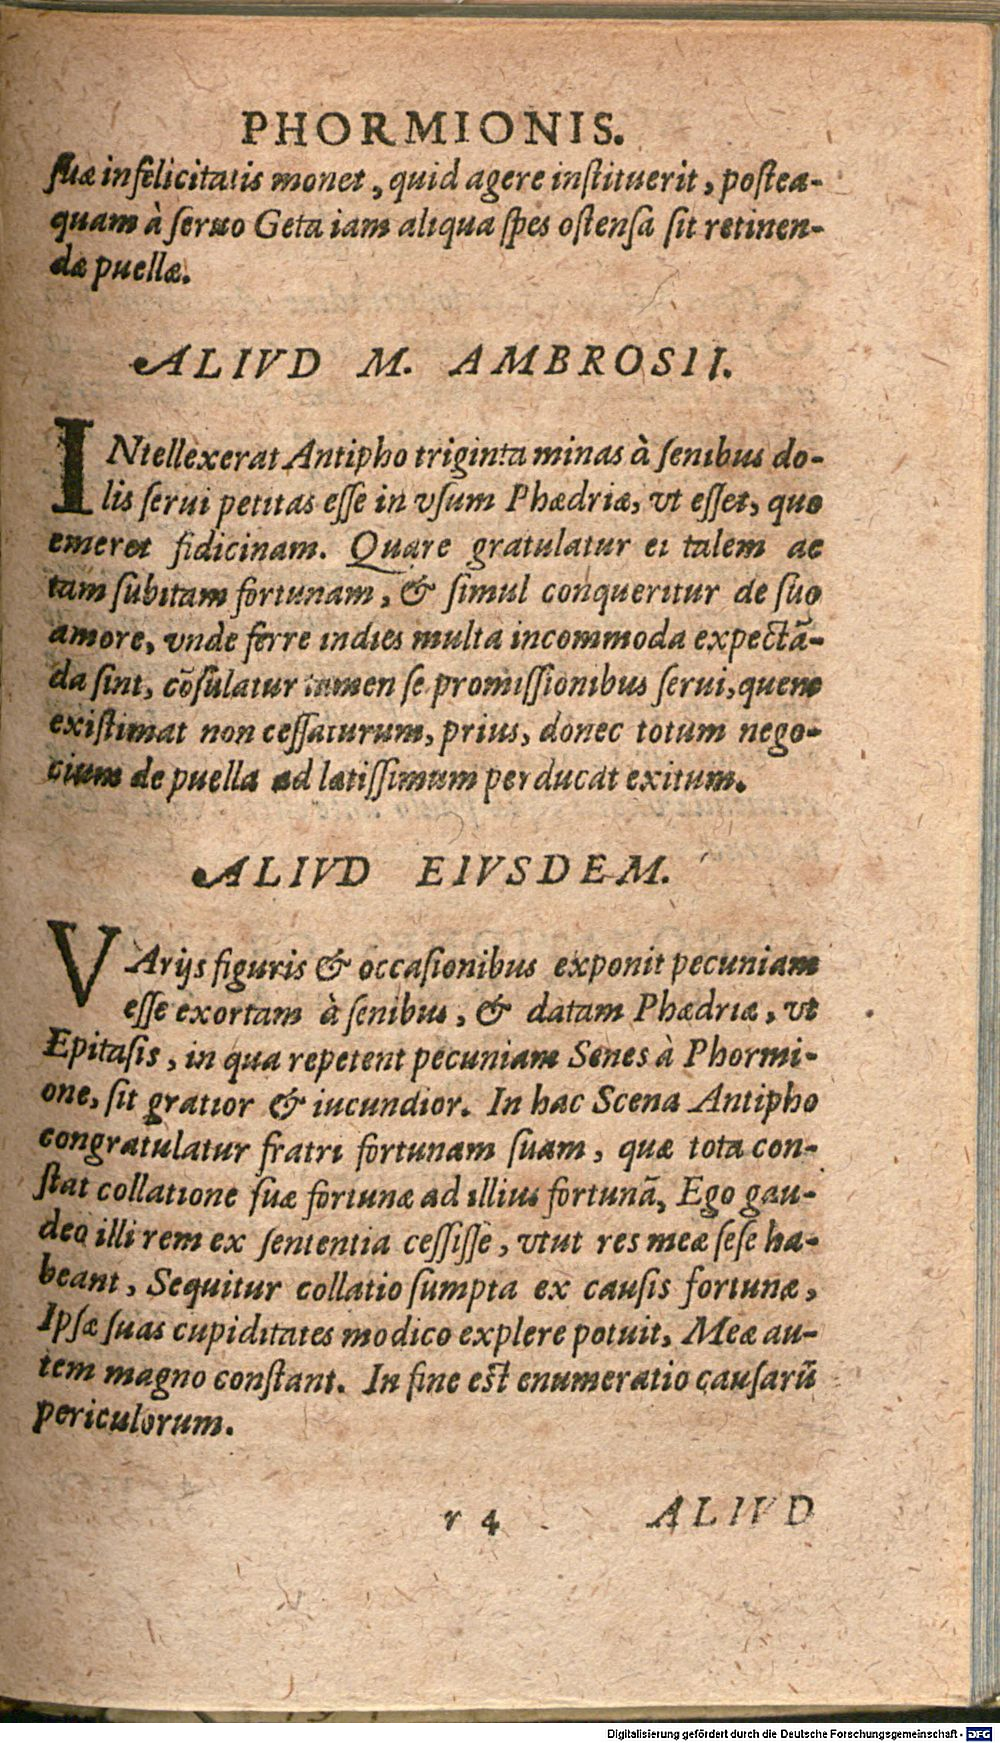 PHORMIONIS.
ſuæ infelicitatis monet, quid agere inſtituerit, poſtea-
quam à ſeruo Geta iam aliqua ſpes oſtenſa ſit retinen-
dæ puellæ.
ALIVD M. AMBROSII.
INtellexerat Antipho triginta minas à ſenibus do-
lis ſerui petitas eſſe in vſum Phædriæ, vt eſſet, quo
emeret fidicinam. Quare gratulatur ei talem ac
tam ſubitam fortunam, & ſimul conqueritur de ſuo
amore, vnde ferre indies multa incommoda expectã-
da ſint, cõſulatur tamen ſe promiſſionibus ſerui, quem
exiſtimat non ceſſaturum, prius, donec totum nego-
cium de puella ad latiſſimum perducat exitum.
ALIVD EIVSDEM.
VArijs figuris & occaſionibus exponit pecuniam
eſſe exortam à ſenibus, & datam Phædriæ, vt
Epitaſis, in qua repetent pecuniam Senes à Phormi-
one, ſit gratior & iucundior. In hac Scena Antipho
congratulatur fratri fortunam ſuam, quæ tota con-
ſtat collatione ſuæ fortunæ ad illius fortunã, Ego gau-
deo illi rem ex ſententia ceſſiſſe, vtut res meæ ſeſe ha-
beant, Sequitur collatio ſumpta ex cauſis fortunæ,
Ipſæ ſuas cupiditates modico explere potuit, Meæ au-
tem magno conſtant. In fine eſt enumeratio cauſarũ
periculorum.
r 4 ALIVD
Digitalisierung gefördert durch die Deutsche Forschungsgemeinschaft - DFG